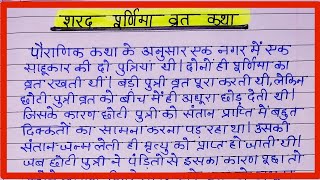 शरद पूर्णिमा व्रत कथा
पौराणिक कथा के अनुसार एक नगर में एक
साहूकार की दो पुत्रियां थी। दोनों ही पूर्णिमा का
व्रत रखती थीं। बड़ी पुत्री व्रत पूरा करती थी, लेकिन
छोटी पुत्री व्रत को बीच में ही अधूरा छोड़ देती थी।
जिसके कारण छोटी पुत्री को संतान प्राप्ति में बहुत
दिक्कतों का सामना करना पड़ रहा था। उसकी
संतान जन्म लेती ही मृत्यु को प्राप्त हो जाती थी।
जब छोटी पुत्री ने पंडितों से इसका कारण पूछा तो